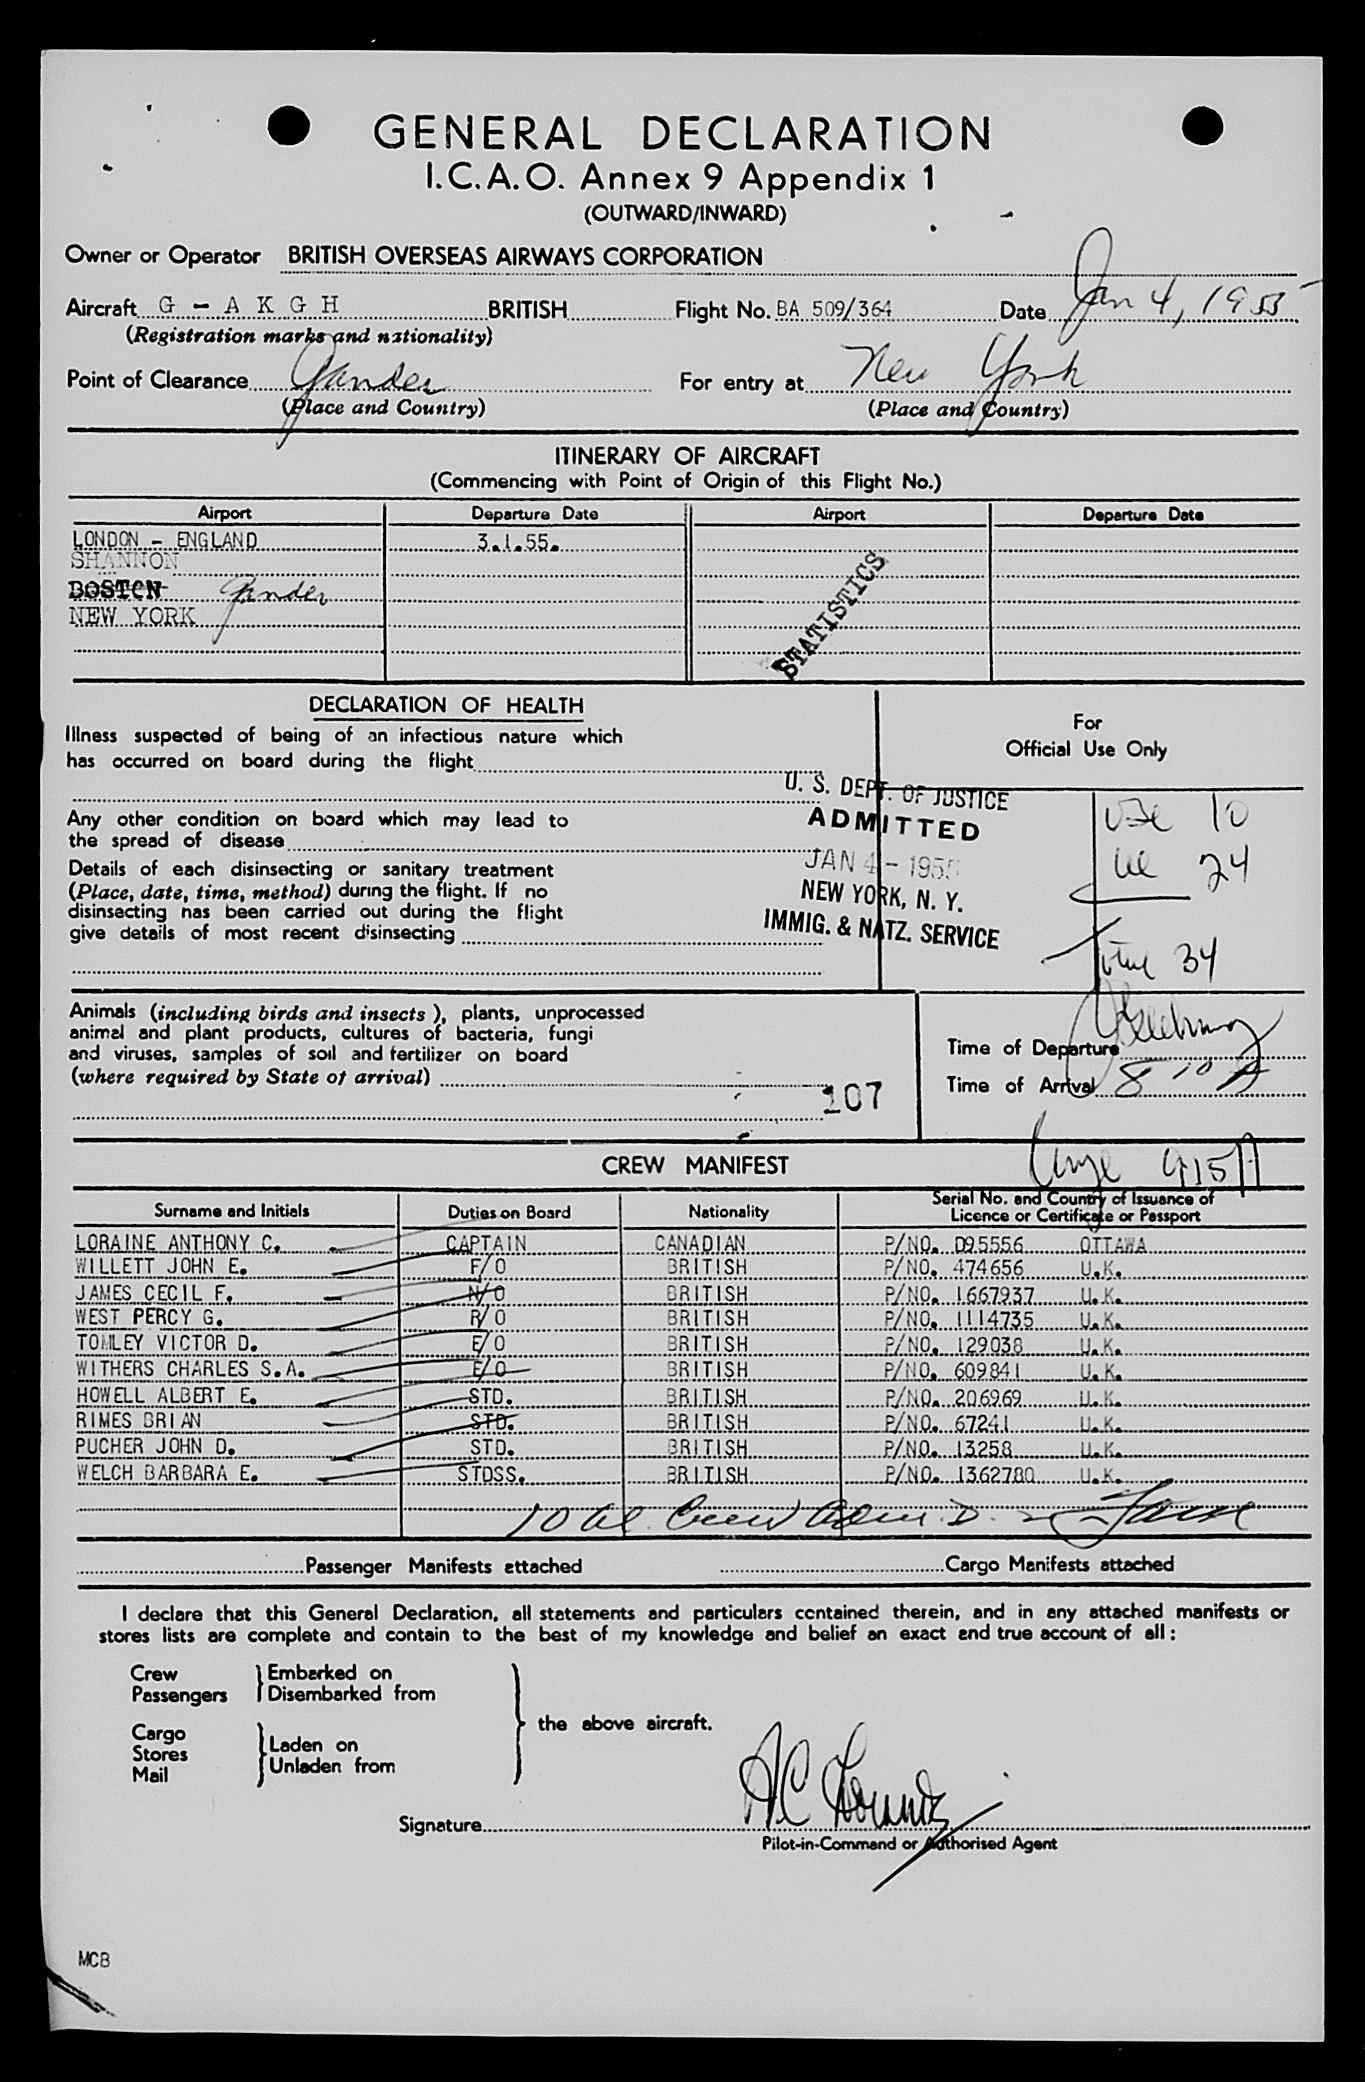 GENERAL DECLARATION
I.C.A.O. Annex 9 Appendix 1
(OUTWARD/INWARD)
Owner or Operator BRITISH OVERSEAS AIRWAYS CORPORATION
Aircraft G - A K G H BRITISH Flight No. BA 509/364 Date Jan 4, 1955
(Registration marks and nationality)
Point of Clearance Gander For entry at New York
(Place and Country) (Place and Country)
ITINERARY OF AIRCRAFT
(Commencing with Point of Origin of this Flight No.)
Airport Departure Date Airport Departure Date
LONDON - ENGLAND 3.1.55.
SHANNON
BOSTON Gander
NEW YORK
STATISTICS
DECLARATION OF HEALTH
Illness suspected of being of an infectious nature which
has occurred on board during the flight
Any other condition on board which may lead to
the spread of disease
Details of each disinsecting or sanitary treatment
(Place, date, time, method) during the flight. If no
disinsecting has been carried out during the flight
give details of most recent disinsecting
For
Official Use Only
U. S. DEPT. OF JUSTICE
ADMITTED
JAN 4 - 1955
NEW YORK, N. Y.
IMMIG. & NATZ. SERVICE
10
24
34
Animals (including birds and insects), plants, unprocessed
animal and plant products, cultures of bacteria, fungi
and viruses, samples of soil and fertilizer on board
(where required by State of arrival)
107
Time of Departure
Time of Arrival 8 10 A
915 A
CREW MANIFEST
Surname and Initials Duties on Board Nationality Serial No. and Country of Issuance of
Licence or Certificate or Passport
LORAINE ANTHONY C. CAPTAIN CANADIAN P/NO. D95556 OTTAWA
WILLETT JOHN E. F/O BRITISH P/NO. 474656 U.K.
JAMES CECIL F. N/O BRITISH P/NO. 1667937 U.K.
WEST PERCY G. R/O BRITISH P/NO. 1114735 U.K.
TOMLEY VICTOR D. E/O BRITISH P/NO. 129038 U.K.
WITHERS CHARLES S.A. E/O BRITISH P/NO. 609841 U.K.
HOWELL ALBERT E. STD. BRITISH P/NO. 206969 U.K.
RIMES BRIAN STD. BRITISH P/NO. 67241 U.K.
PUCHER JOHN D. STD. BRITISH P/NO. 13258 U.K.
WELCH BARBARA E. STDSS. BRITISH P/NO. 1362780 U.K.
10 Crew
Passenger Manifests attached Cargo Manifests attached
I declare that this General Declaration, all statements and particulars contained therein, and in any attached manifests or
stores lists are complete and contain to the best of my knowledge and belief an exact and true account of all :
Crew Embarked on
Passengers Disembarked from
the above aircraft.
Cargo
Stores Laden on
Mail Unladen from
Signature AC Loraine
Pilot-in-Command or Authorised Agent
MCB